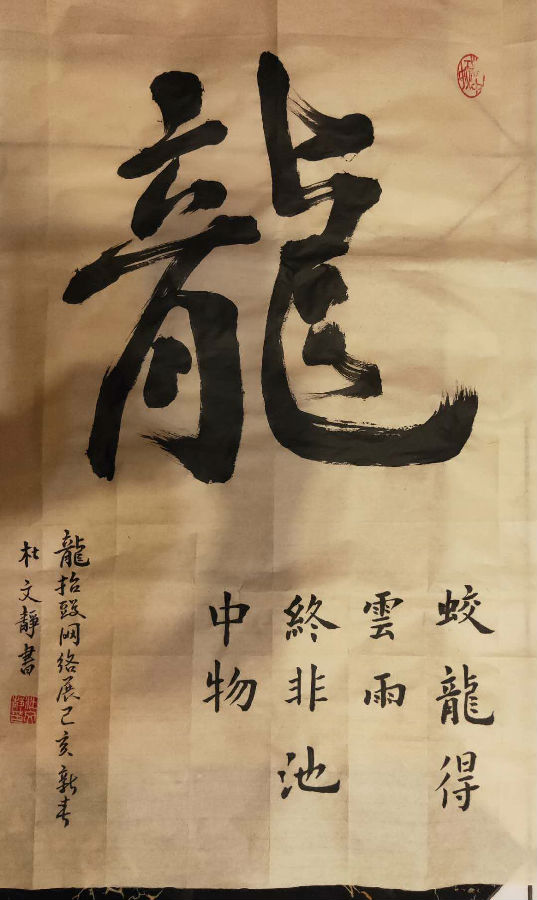 龍
蛟龍得
雲雨
終非池
中物
龍抬頭网络展己亥新春
杜文靜書